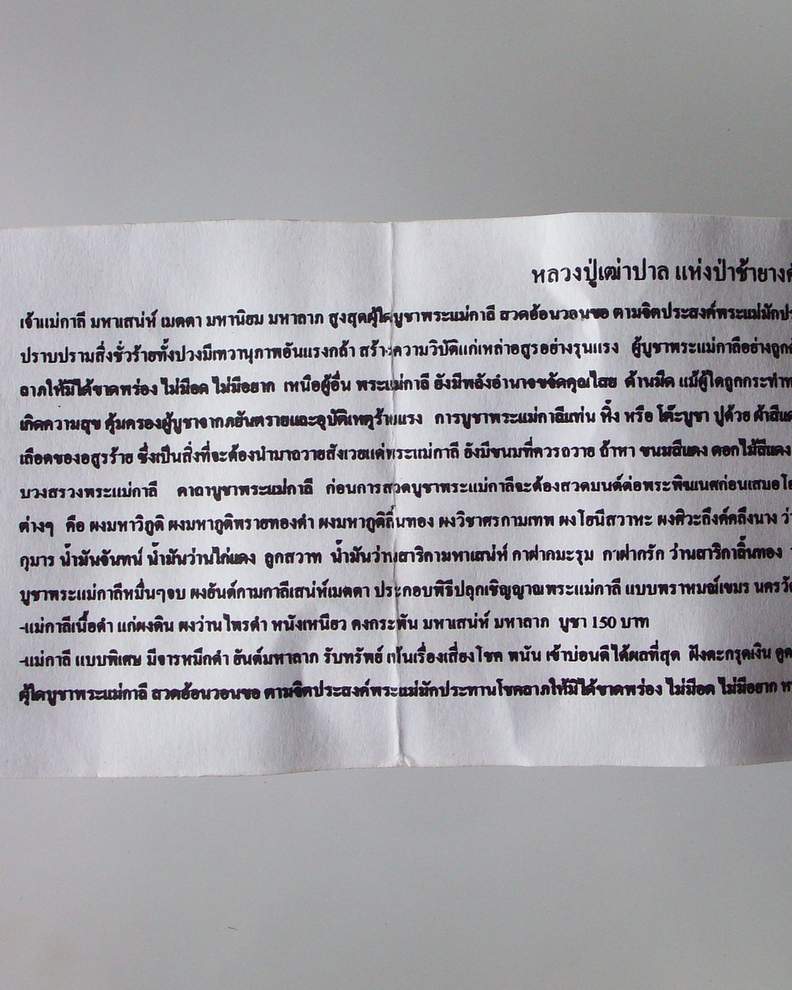 หลวงปู่เฒ่าปาล แห่งป่าช้ายาง
เจ้าแม่กาลี มหาเสน่ห์ เมตตา มหานิยม มหาลาภ สูงสุดผู้ใดบูชาพระแม่กาลี สวดอ้อนวอนขอ ตามจิตประสงค์พระแม่มัก
ปราบปรามสิ่งชั่วร้ายทั้งปวงมีเทวานุภาพอันแรงกล้า สร้างความวิบัติแก่เหล่าอสูรอย่างรุนแรง ผู้บูชาพระแม่กาลีอย่างถูก
ลาภให้มิได้ขาดพร่อง ไม่มีอด ไม่มีอยาก เหนือผู้อื่น พระแม่กาลี ยังมีพลังอำนาจขจัดคุณไสย ด้านมืด แม้ผู้ใดถูกกระทำ
เกิดความสุข คุ้มครองผู้บูชาจากภยันตรายและอุบัติเหตุร้ายแรง การบูชาพระแม่กาลีแท่น หิ้ง หรือ โต๊ะบูชา ปูด้วย ผ้าสีแดง
เลือดของอสูรร้าย ซึ่งเป็นสิ่งที่จะต้องนำมาถวายสังเวยแด่พระแม่กาลี ยังมีขนมที่ควรถวาย ถ้าหา ขนมสีแดง ดอกไม้สีแดง
บวงสรวงพระแม่กาลี คาถาบูชาพระแม่กาลี ก่อนการสวดบูชาพระแม่กาลีจะต้องสวดมนต์ต่อพระพิฆเนศก่อนเสมอ
ต่างๆ คือ ผงมหาวิภูติ ผงมหาภูติพรายทองคำ ผงมหาภูติลิ้นทอง ผงวิชาศรกามเทพ ผงโยนีสวาหะ ผงศิวะลึงค์คลึงนาง
กุมาร น้ำมันจันทน์ น้ำมันว่านไก่แดง ลูกสวาท น้ำมันว่านสาริกามหาเสน่ห์ กาฝากมะรุม กาฝากรัก ว่านสาริกาลิ้นทอง
บูชาพระแม่กาลีหมื่นๆจบ ผงยันต์กามกาลีเสน่ห์เมตตา ประกอบพิธีปลุกเชิญญาณพระแม่กาลี แบบพราหมณ์เขมร นครวัด
-แม่กาลีเนื้อดำ แก่ผงดิน ผงว่านไพรดำ หนังเหนียว คงกระพัน มหาเสน่ห์ มหาลาภ บูชา 150 บาท
-แม่กาลี แบบพิเศษ มีจารหมึกดำ ยันต์มหาลาภ รับทรัพย์ เน้นเรื่องเสี่ยงโชค พนัน เข้าบ่อนดีได้ผลที่สุด ฝังตะกรุดเงิน
ผู้ใดบูชาพระแม่กาลี สวดอ้อนวอนขอ ตามจิตประสงค์พระแม่มักประทานโชคลาภให้มิได้ขาดพร่อง ไม่มีอด ไม่มีอยาก